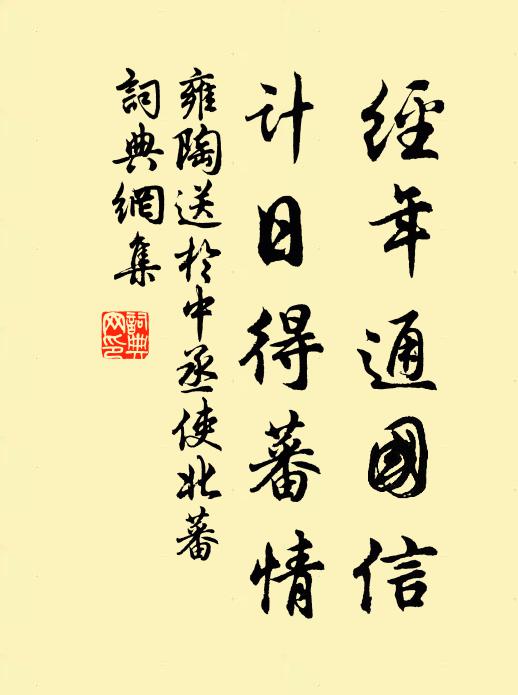 經年通國信
計日得蕃情
雍陶送於中丞使北蕃
詞典網集
詞典網印